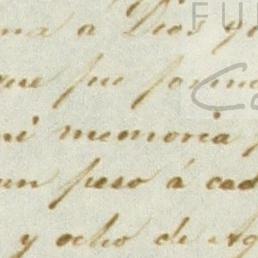 ma á Dios q
que fue form
mi memoria
un peso á cad
y ocho de Ag
FU
Ca